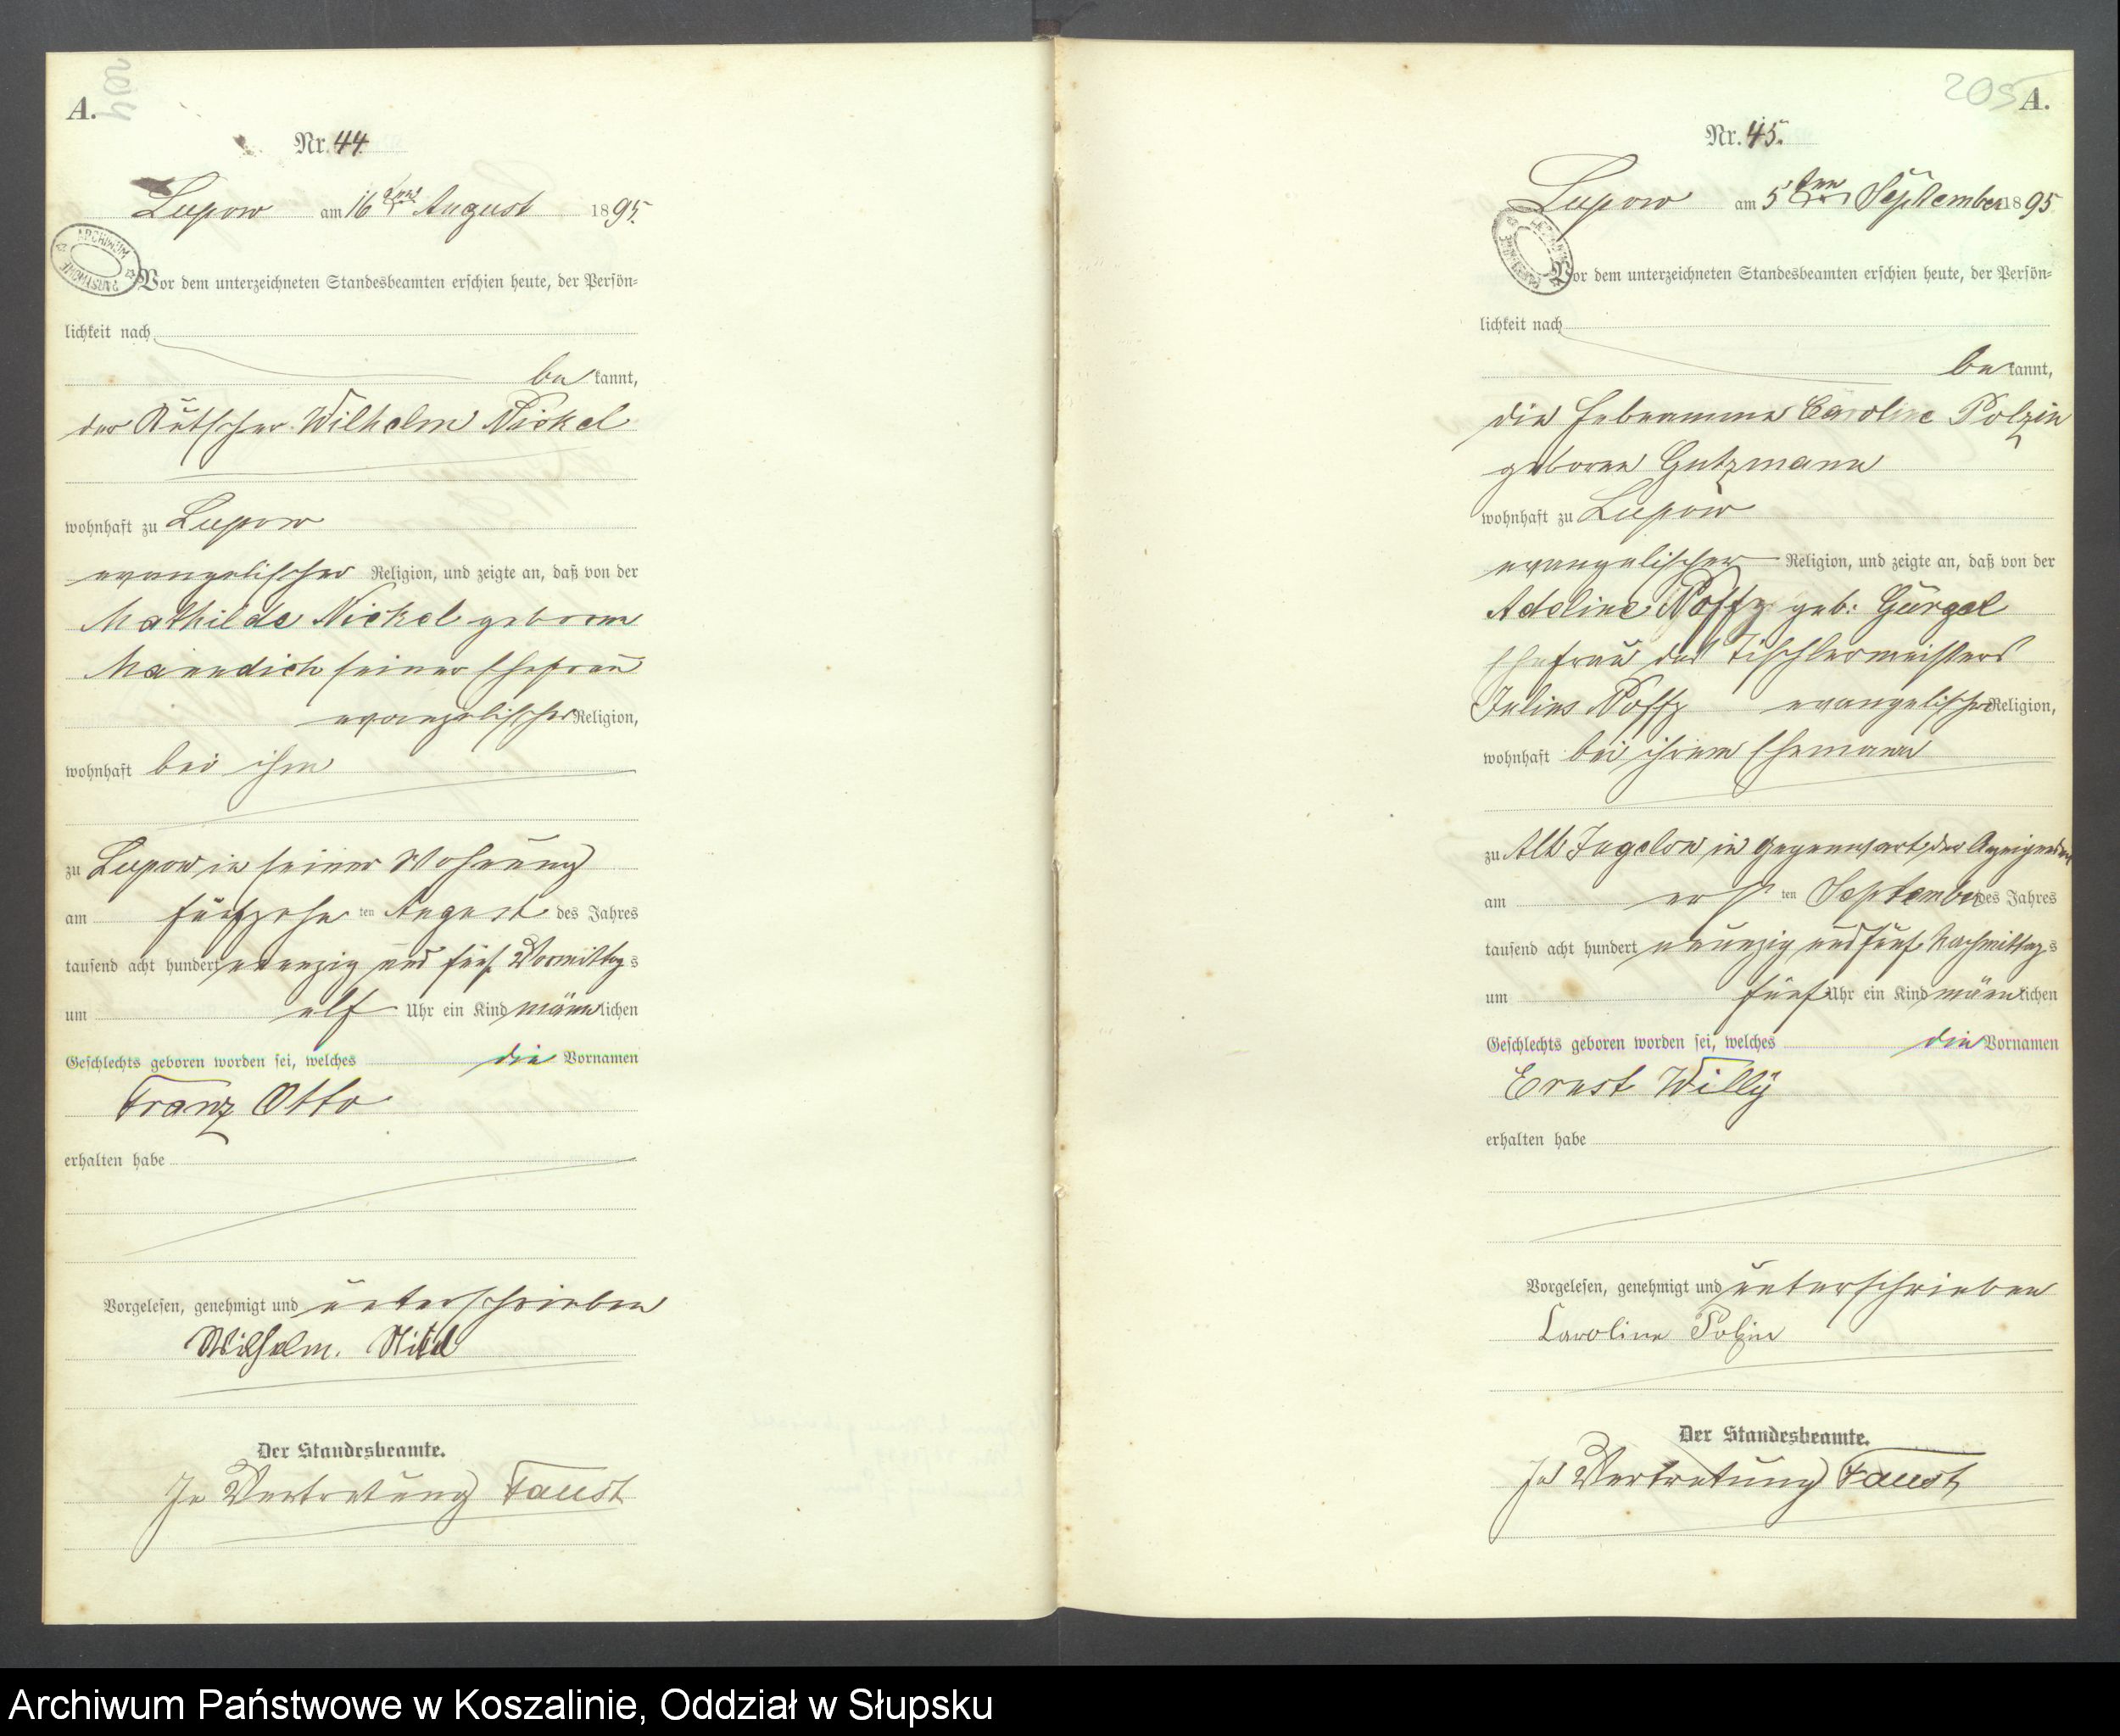 204
A.
Nr. 44
Lupow am 16ten August 1895.
ARCHIWUM PAŃSTWOWE
Vor dem unterzeichneten Standesbeamten erschien heute, der Persön-
lichkeit nach
be kannt,
der Kutscher Wilhelm Nickel
wohnhaft zu Lupow
evangelischer Religion, und zeigte an, daß von der
Mathilde Nickel geborene
seiner Ehefrau
evangelischer Religion,
wohnhaft bei ihm
zu Lupow in seiner Wohnung
am fünfzehn ten August des Jahres
tausend acht hundert neunzig und fünf Vormittags
um elf Uhr ein Kind männlichen
Geschlechts geboren worden sei, welches die Vornamen
Franz Otto
erhalten habe
Vorgelesen, genehmigt und unterschrieben
Wilhelm.
Der Standesbeamte.
In Vertretung Faust
205
A.
Nr. 45.
Lupow am 5ten September 1895
Vor dem unterzeichneten Standesbeamten erschien heute, der Persön-
lichkeit nach
be kannt,
die Hebeamme Caroline Polzin
geborene Gutzmann
wohnhaft zu Lupow
evangelischer Religion, und zeigte an, daß von der
Adeline geb. Gürgel
Ehefrau des Tischlermeisters
Julius evangelischer Religion,
wohnhaft bei ihrem Ehemann
zu Alt Jugelow in Gegenwart der Anzeigenden
am erst ten September des Jahres
tausend acht hundert neunzig und fünf Nachmittags
um fünf Uhr ein Kind männlichen
Geschlechts geboren worden sei, welches die Vornamen
Ernst Willÿ
erhalten habe
Vorgelesen, genehmigt und unterschrieben
Caroline Polzin
Der Standesbeamte.
In Vertretung Faust
Archiwum Państwowe w Koszalinie, Oddział w Słupsku